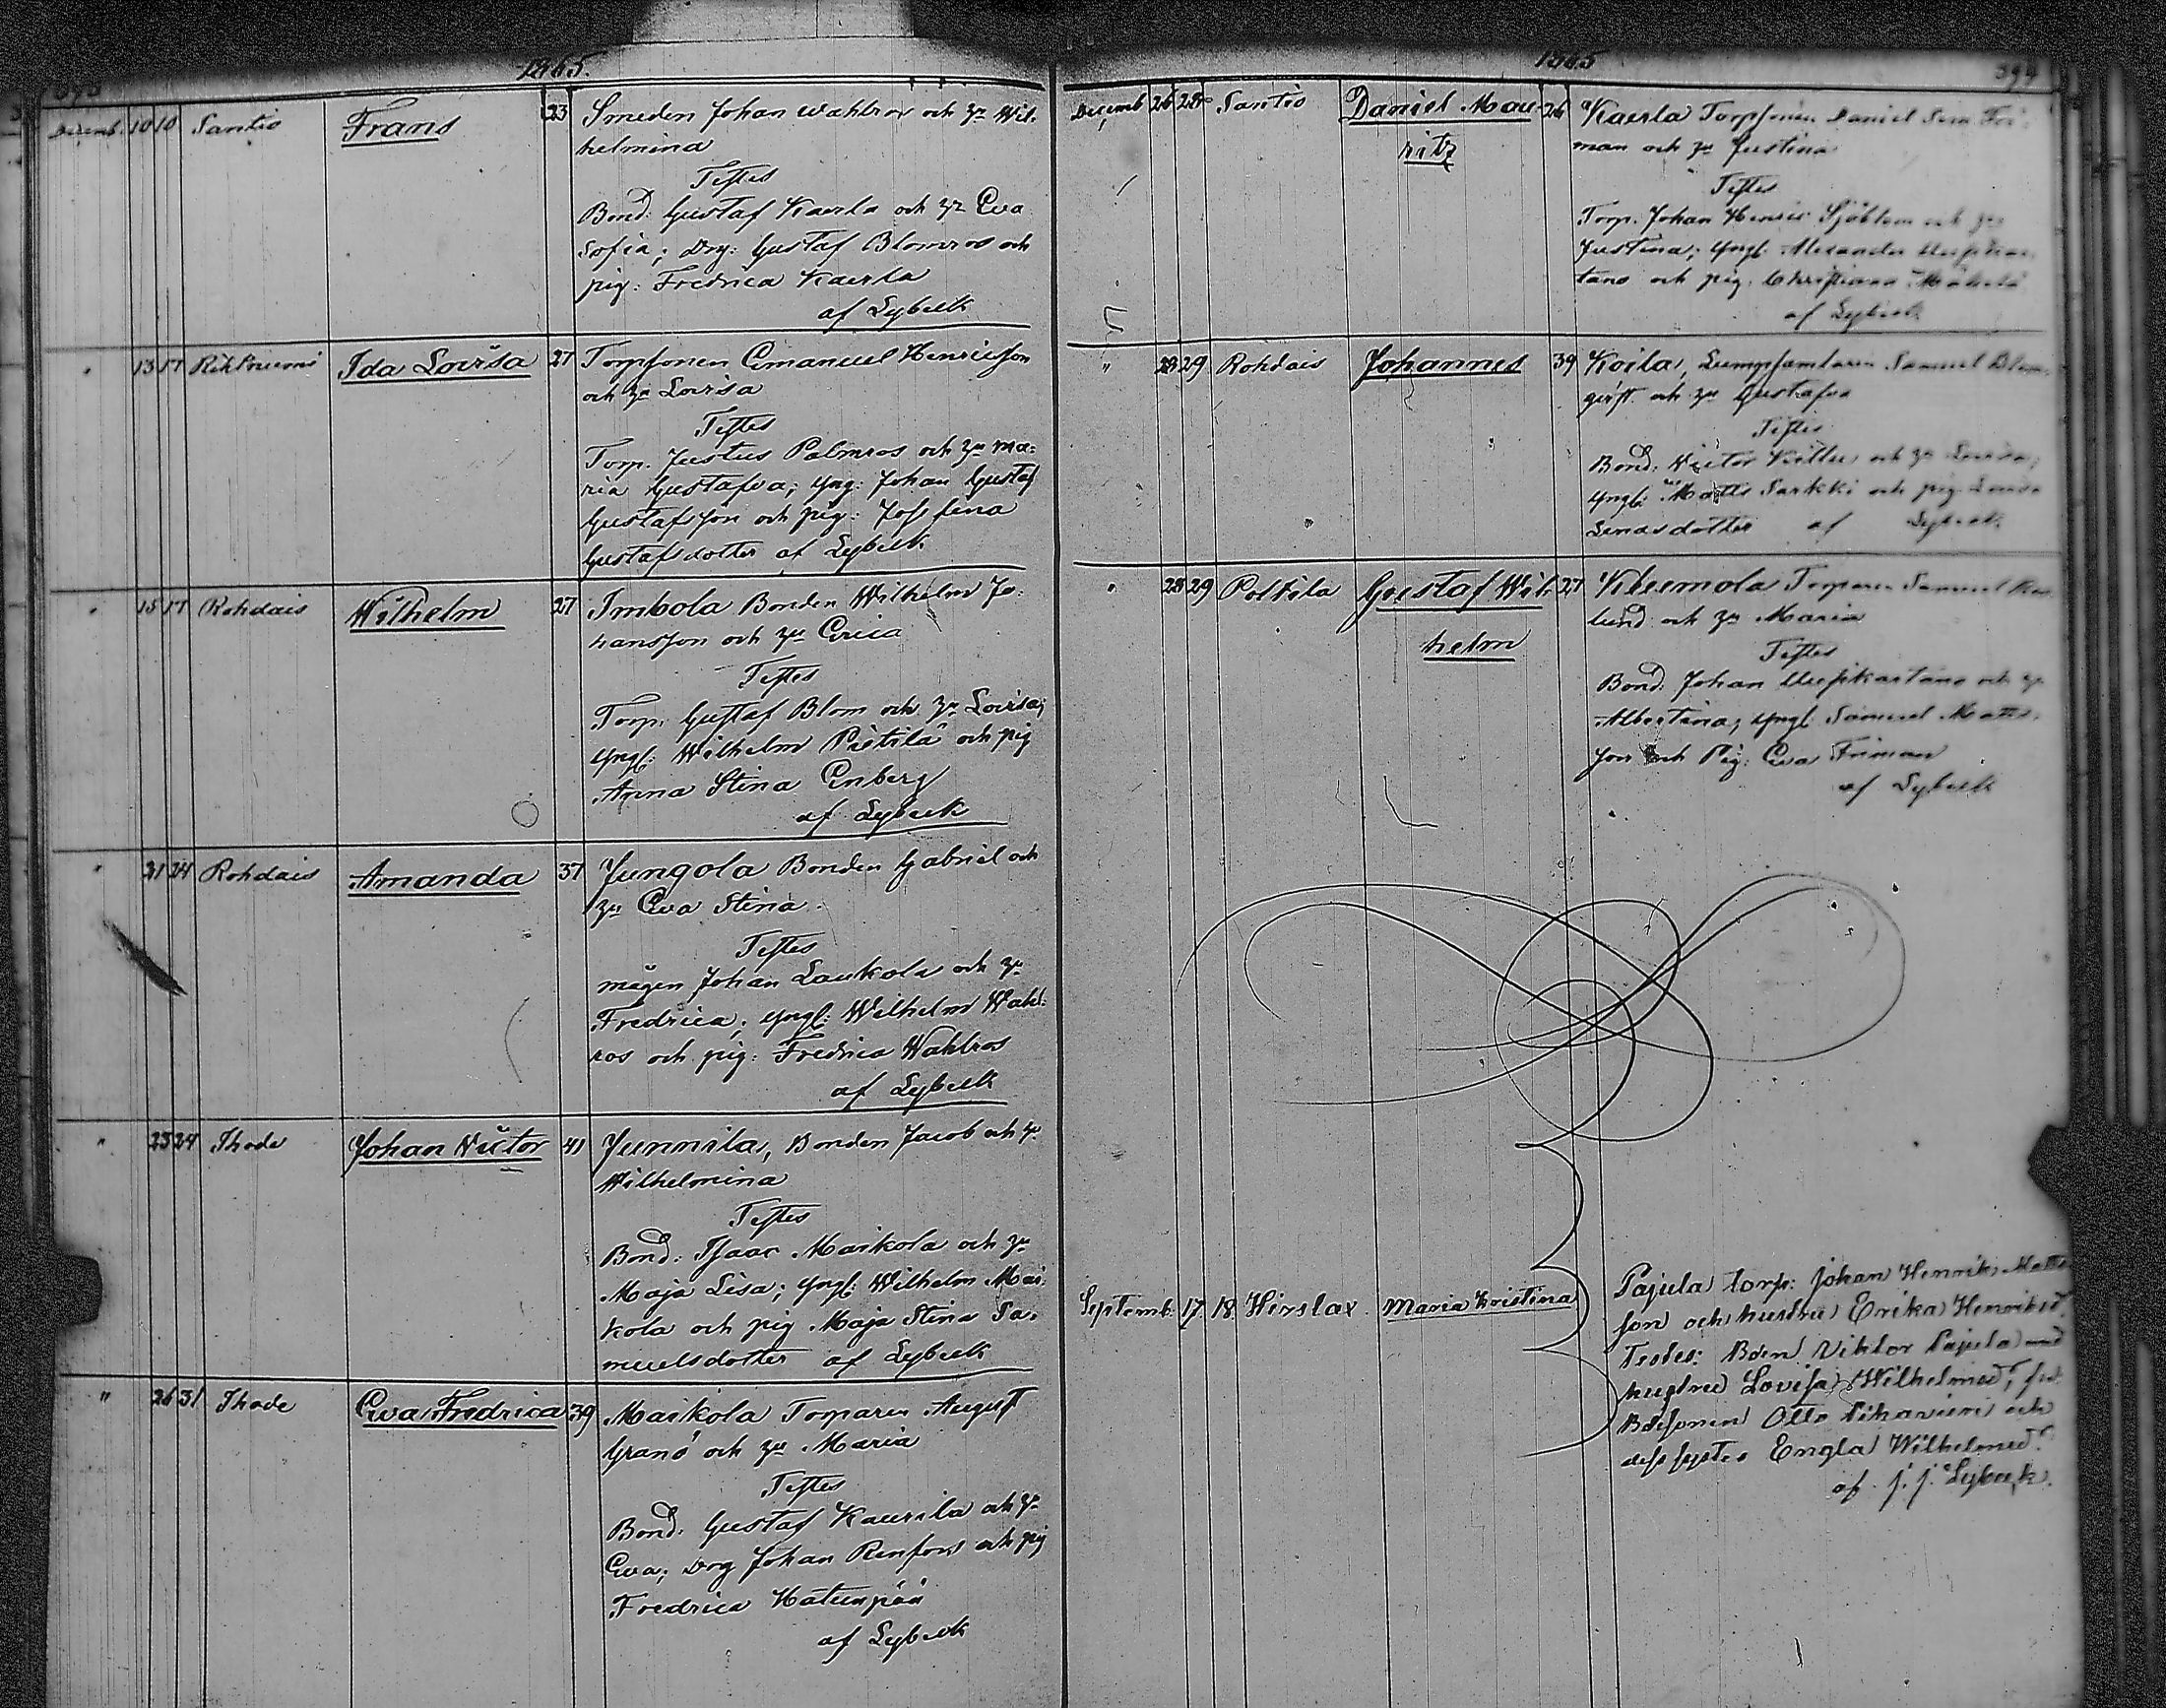 1865.
393
Decemb. 10 10 Santio Frans 23 Smeden Johan Wahlros och hu Wil-
helmina
Testes
Bond: Gustaf Kaerla och hu Eva
Sofia; Drg: Gustaf Blomros och
pig: Fredrica Kaerla
af Lybeck
" 13 17 Ida Lovisa 27 Torpsonen Emanuel Henricsson
och hu Lovisa
Testes
Torp. Justus Palmros och hu Ma-
ria Gustafva; yng: Johan Gustaf
Gustafsson och pig: Josefina
Gustafsdotter af Lybeck
" 15 17 Rohdais Wilhelm 27 Imbola Bonden Wilhelm Jo-
hansson och hu Erica
Testes
Torp: Gustaf Blom och hu Lovisa;
yngl: Wilhelm Pietilä och pig
Anna Stina Enberg
af Lybeck
" 21 24 Rohdais Amanda 37 Jungola Bonden Gabriel och
hu Eva Stina
Testes
mågen Johan Laukola och hu
Fredrica; yngl: Wilhelm Wahl-
ros och pig: Fredrica Wahlros
af Lybeck
" 23 24 Ihode Johan Victor 41 Junnila, Bonden Jacob och hu
Wilhelmina
Testes
Bond: Isaac Maikola och hu
Maja Lisa; yngl: Wilhelm Mai-
kola och pig Maja Stina Sa-
muelsdotter af Lybeck
" 26 31 Ihode Eva Fredrica 39 Maikola Torparen August
Granö och hu Maria
Testes
Bond: Gustaf Kaurila och hu
Eva; Drg Johan Renfors och pig
Fredrica Hatunpää
af Lybeck
1865
394
Decemb 26 28 Santio Daniel Mau- 26 Kaerla Torpsonen Daniel Sem Fri-
ritz man och hu Justina
Testes
Torp. Johan Henric Sjöblom och hu
Justina; yngl. Alexander Uusikar-
tano och pig. Christiana Mäkelä
af Lybeck
" 28 29 Rohdais Johannes 39 Koila, Lumpsamlaren Samuel Blom-
qvist och hu Gustafva
Testes
Bond: Victor och hu Lovisa;
yngl: Matts Sarkki och pig Lovisa
Lenasdotter af Lybeck
" 28 29 Polttila Gustaf Wil- 27 Kleemola Torparen Samuel
lund och hu Maria
helm
Testes
Bond: Johan Uusikartano och hu
Albertina; yngl: Samuel Matts-
son och Pig: Eva Friman
af Lybeck
Septemb. 17. 18. Hirslax Maria Kristina Pajula torp: Johan Henrik Matts-
son och hustru Erika Henriksd.
Testes: Bden Viktor Pajula med
hustru Lovisa Wilhelmsd;
Bdesonen Otto och
dess syster Engla Wilhelmsd.
af J. J. Lybeck.